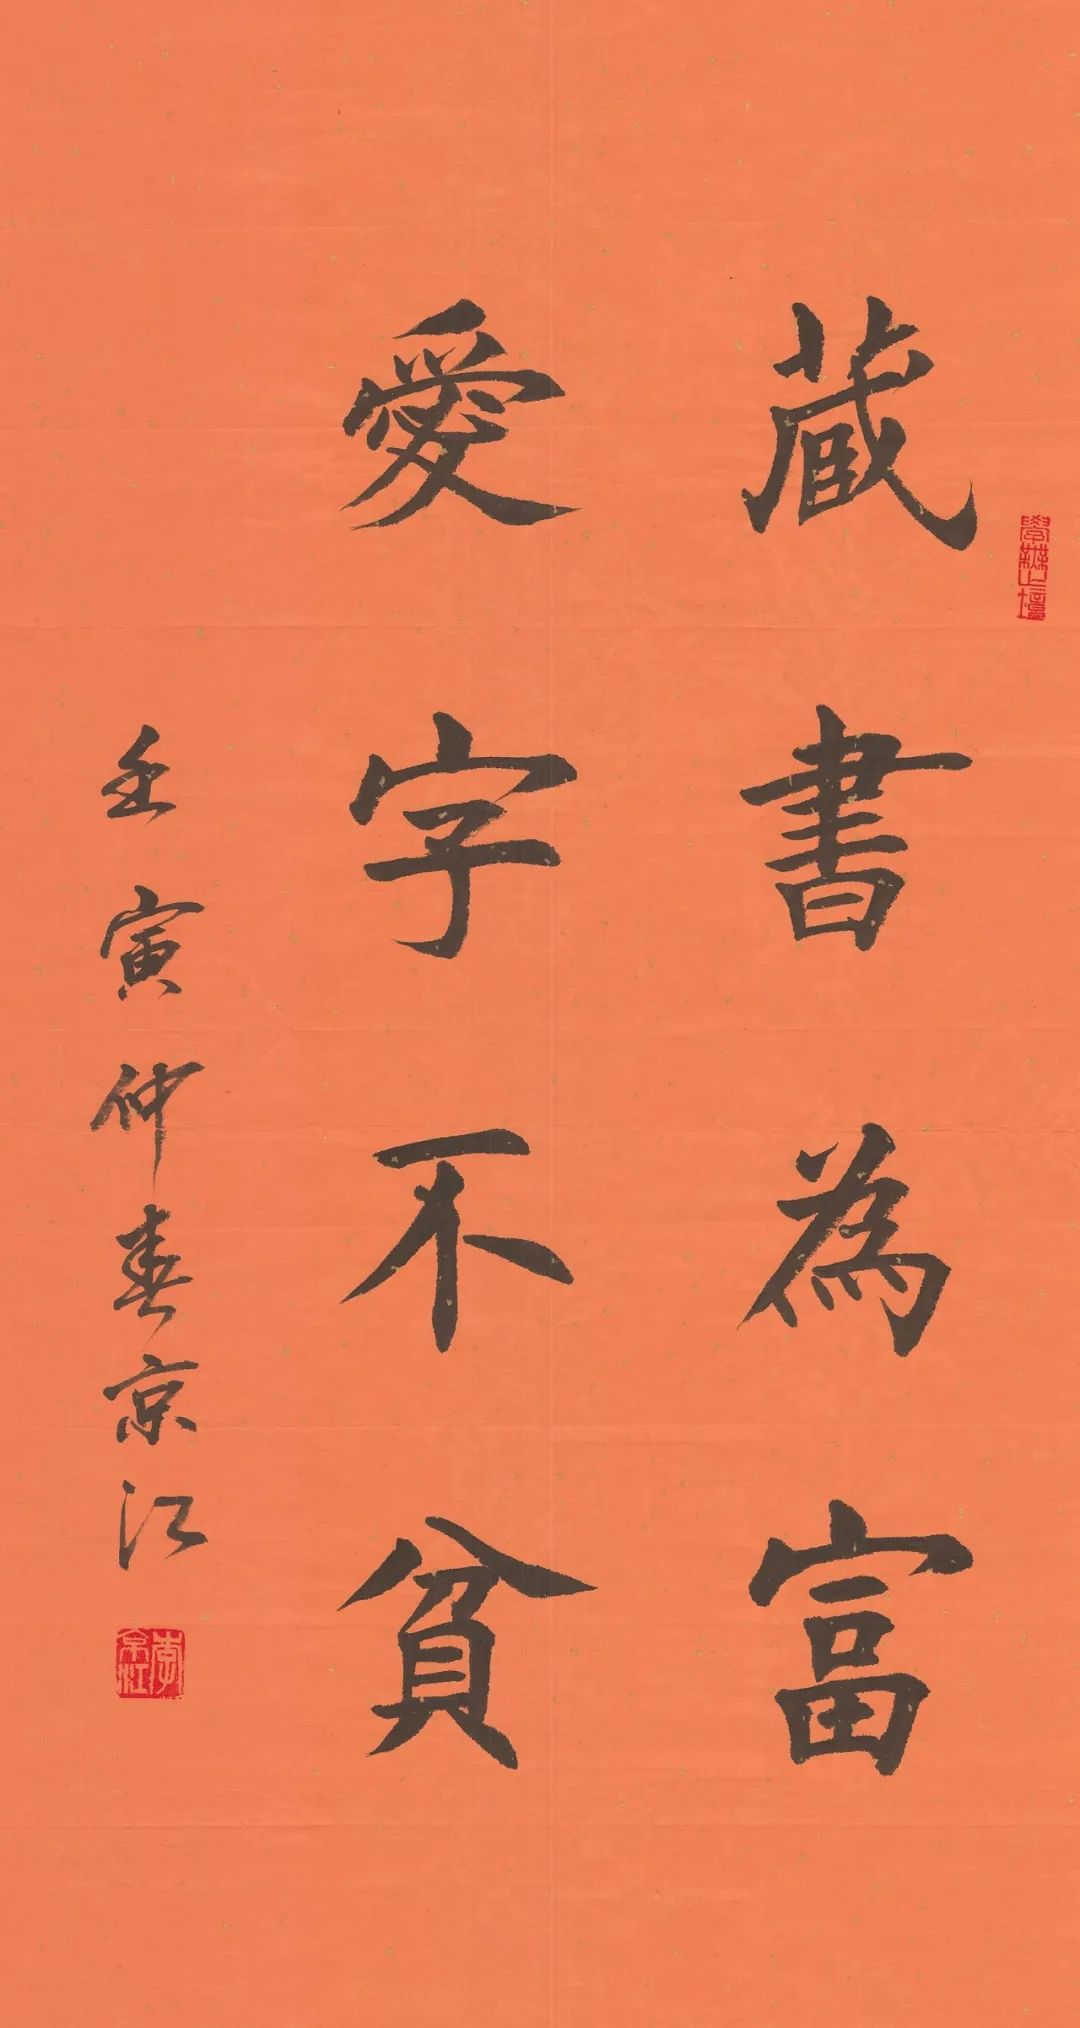 藏書為富
愛字不貧
壬寅仲春京江
李京江